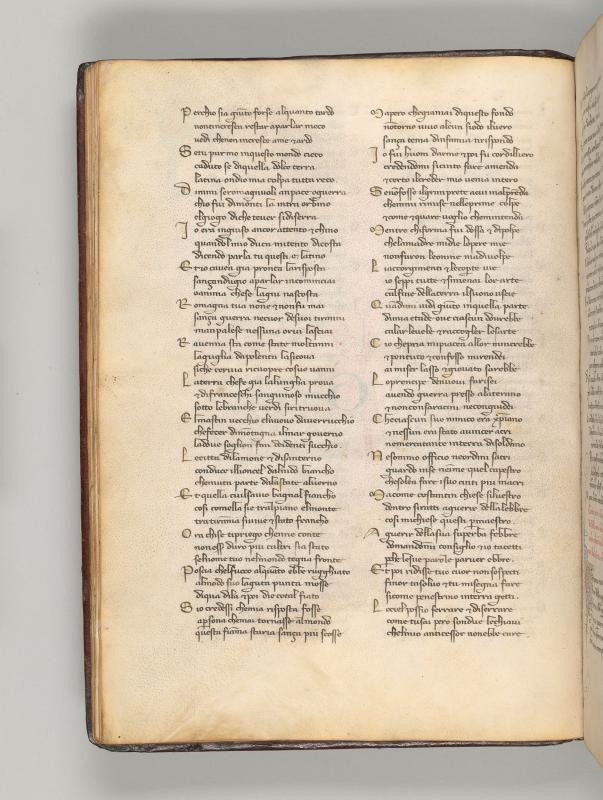 Perchio sia giũto forse alquanto tardo
nontincresca restar aparlar meco
vedi chenon incresce ame & ardo
Se tu pur mo inquesto mondo cieco
caduto se diquella dolce terra
latina ondio mia colpa tutta reco
Dimmi seromagnuoli anpace oguerra
chio fui dimonti la intra orbino
elgiogo diche tever sidiserra
Io era ingiuso ancor attento & chino
quandol mio duca mitento dicosta
dicendo parla tu questi e latino
Et io cavea gia pronta larisposta
sançandugio aparlar incominciai
oanima chese lagiu nascosta
Romagna tua none & nonfu mai
sança guerra necuor desuoi tiranni
manpalese nessuna orvi lasciai
Ravenna sta come stata moltanni
laguglia dapolenta lasicova
siche cervia ricuopre cosuo vanni
La terra chese gia lalungha prova
& difranceschi sanguinoso mucchio
sotto lebranche verdi siritruova
El mastin vecchio elnuovo daverrucchio
chefecer dimontagna ilmar governo
ladove soglion fan deidenti succhio
Le citta dilamone & disanterno
conduce illioncel dalnido biancho
chemuta parte dalastate alverno
Et quella cuilsavio bagnal fiancho
cosi comella sie tralpiano elmonte
tra tirannia sivive & stato francho
Ora chise tipriego chenne conte
nonesser duro piu caltri sia stato
selnome tuo nelmondo tegna fronte
Poscia chelfuoco alquãto ebbe rugghiato
almodo suo laguta punta mosse
diqua dila & poi die cotal fiato
Sio credessi chemia risposta fosse
apsona chemai tornasse almondo
questa fiãma staria sança piu scosse
Ma pero chegiamai diquesto fondo
nontorno vivo alcun siodo ilvero
sança tema dinfamia tirispondo
Io fui huom darme & poi fu cordilliero
credendomi sicinto fare amenda
& certo ilcreder mio venia intero
Senõfosse ilgran prete acui malprenda
chemmi rimise nelleprime colpe
& come & quare voglio chemmintenda
Mentre chiforma fui dossa & dipolpe
chelamadre midie lopere mie
nonfuron leonine madivolpe
Liaccorgimenti & lecopte vie
io seppi tutte & simenai lor arte
calfine dellaterra ilsuono uscie
Quadomi vidi giunto inquella parte
dimia etade ove ciascun dovrebbe
calar levele & raccoglier lesarte
Cio chepria mipiacea allor mincrebbe
& pentuto & confesso mirendei
ai miser lasso & giovato sarebbe
Lo prencipe denuovi farisei
avendo guerra presso alaterano
& non consaracini neconguidei
Checiascun suo nimico era xp̃iano
& nessun era stato avincer acri
nemercatante interra disoldano
Nesommo officio neordini sacri
guardo inse nein me quel capestro
chesolea fare isuo cinti piu macri
Ma come costantin chiese silvestro
dentro siratti aguerir dellalebbre
cosi michiese questi pmaestro
A guerir dellasua superba febbre
domandomi consiglio & io tacetti
pchele sue parole parver ebbre
Et poi ridisse tuo cuor nonsospecti
finor tasolvo & tu misegna fare
sicome penestrino interra getti
Lo ciel posso serrare & diserrare
come tusai pero sondue lechiavi
chelmio anticessor nonebbe care